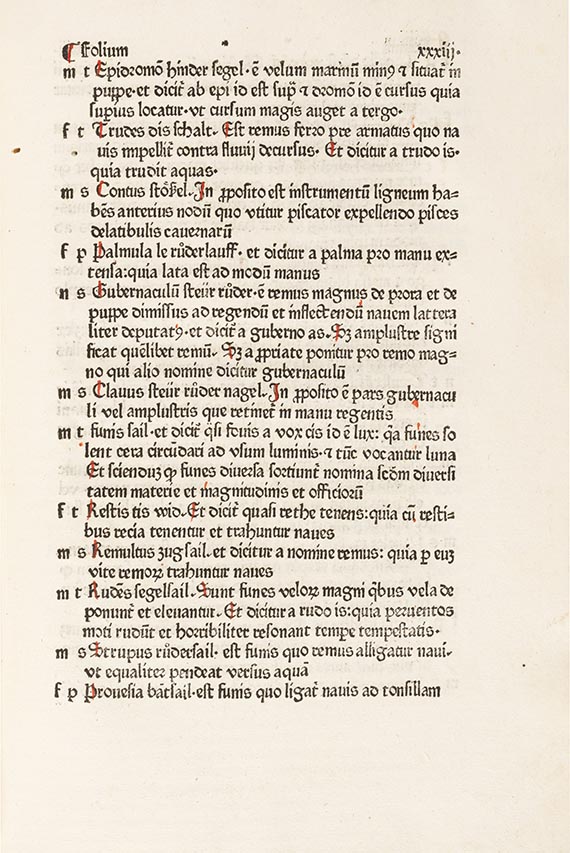 ¶ Folium xxxiij.
m t Epidromō hinder segel. ē velum marinū minꝰ ⁊ situat᷑ in
puppe. et dicit᷑ ab epi id est supᷓ ⁊ dromō id ē cursus quia
superius locatur. vt cursum magis auget a tergo.
f t Trudes dis schalt. Est remus ferro pre armatus quo na
uis impellit᷑ contra fluuij decursus. Et dicitur a trudo is.
quia trudit aquas.
m s Contus stōkel. In ꝓposito est instrumentū ligneum ha⸗
bēs anterius nodū quo vtitur piscator expellendo pisces
delatibulis cauernarū
f p Palmula le růderlauff. et dicitur a palma pro manu ex⸗
tensa: quia lata est ad modū manus
n s Gubernaculū steür růder. ē remus magnus de prora et de
puppe dimissus ad regendū et inflectendū nauem lattera
liter deputatꝰ. et dicit᷑ a guberno as. Sꝫ amplustre signi
ficat quēlibet remū. Sꝫ a ꝓpriate ponitur pro remo mag⸗
no qui alio nomine dicitur gubernaculū
m s Clauus steür růder nagel. In ꝓposito ē pars gubernacu
li vel amplustris que retinet᷑ in manu regentis
m t funis sail. et dicit᷑ q̄si fouis a vox cis id ē lux: q̄a funes so
lent cera circūdari ad vsum luminis. ⁊ tūc vocantur luna
Et scienduꝫ ꝙ funes diuersa sortiunt᷑ nomina scd̄m diuersi
tatem materie et magnitudinis et officiorū
f t Restis tis wid. Et dicit᷑ quasi rethe tenens: quia cū resti⸗
bus recia tenentur et trahuntur naues
m s Remultus zugsail. et dicitur a nomine remus: quia ꝑ euꝫ
vite remoꝝ trahuntur naues
m t Rudēs segelsail. Sunt funes veloꝝ magni q̇bus vela de
ponunt᷑ et eleuantur. Et dicitur a rudo is: quia per ventos
moti rudūt et horribiliter resonant tempe tempestatis.
m s Strupus růdersail. est funis quo remus alligatur naui.
vt equaliter pendeat versus aquā
f p Prouesia bātsail. est funis quo ligat᷑ nauis ad tonsillam